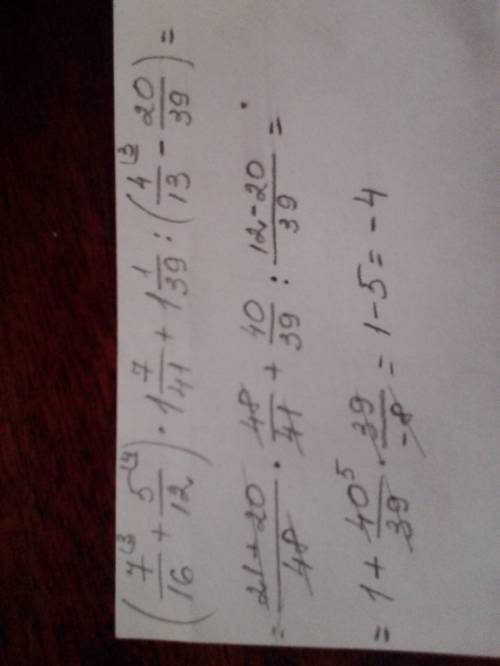 (7/16 ⌊3 + 5/12 ⌊4) · 1 7/41 + 1 1/39 : (4/13 ⌊3 - 20/39) =
= (21+20)/48 · 48/41 + 40/39 : (12-20)/39 =
= 1 + 40⁵/39 · 39/-8 = 1-5 = -4